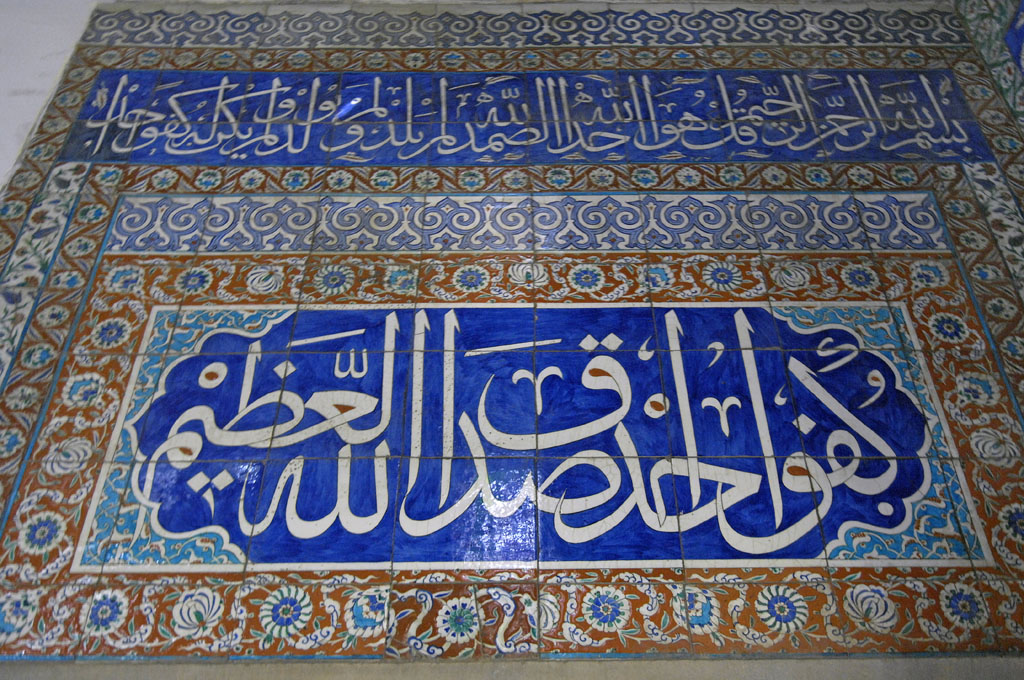 بسم الله الرحمن الرحيم قل هو الله احد الله الصمد لم يلد ولم يولد ولم يكن له كفوا احد
كفوا احد صدق الله العظيم